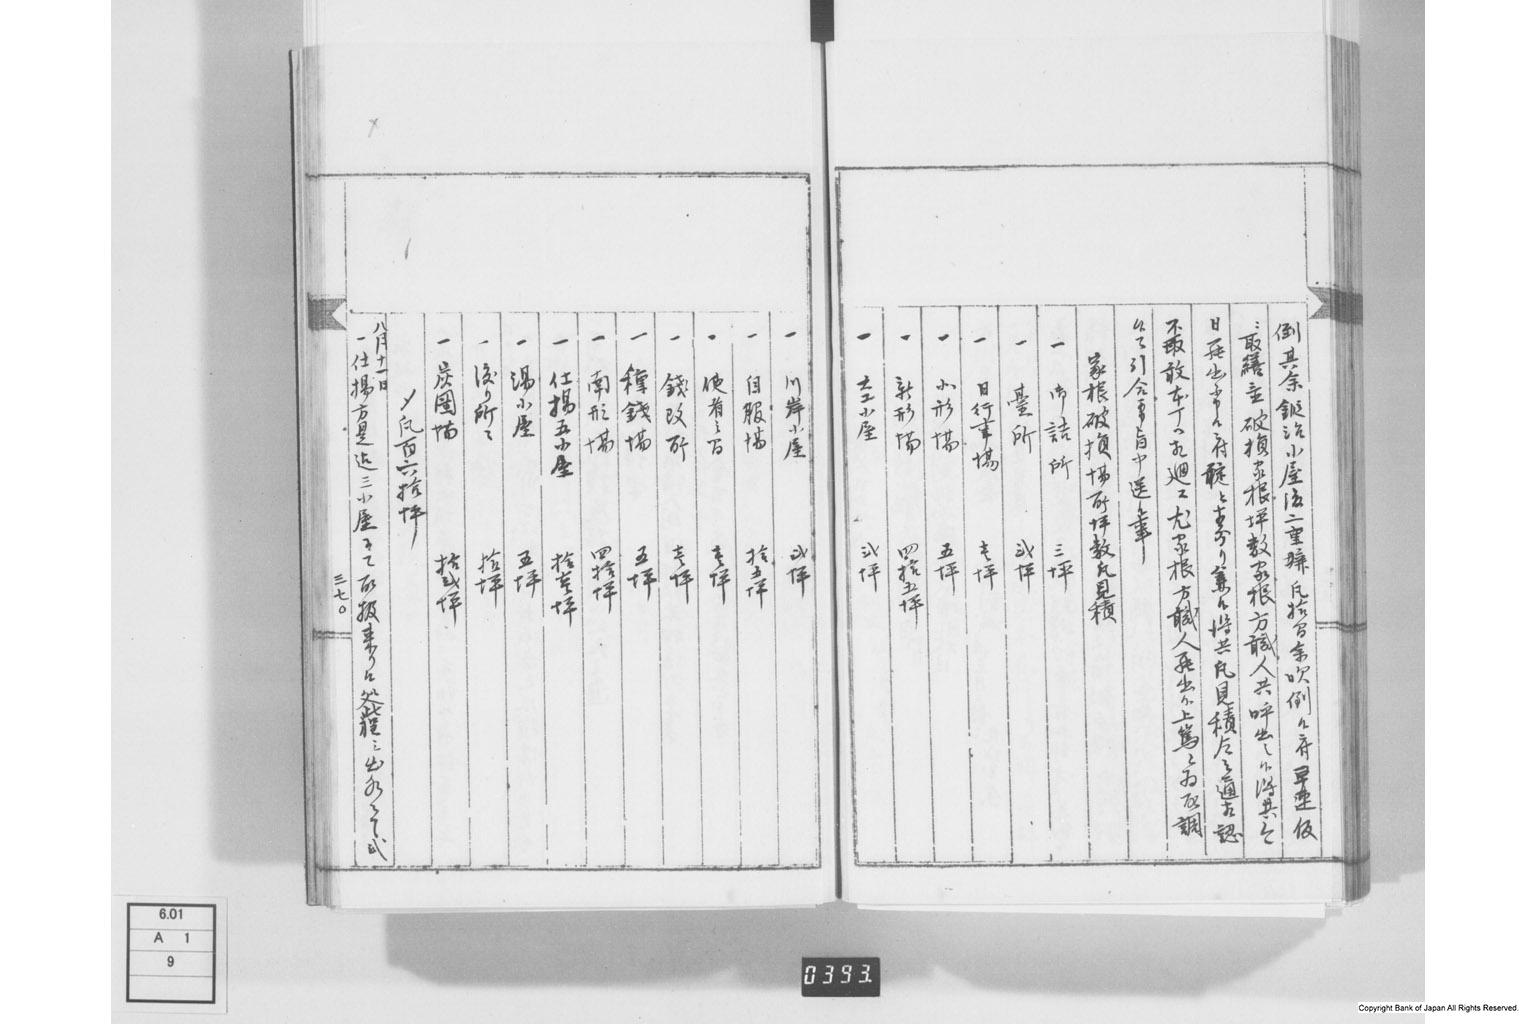 倒其余鍛冶小屋後二重塀凡拾間余吹倒候ニ付早速仮
取繕並破損家根坪数家根方職人共呼出し候得共今
日罷出不申候ニ付
不取敢本丁 相廻工尤家根方職人罷出候上篤と為取調
引合可申旨申送候事
家根破損場所坪数凡見積
一 御詰所 三坪
一 臺所 弐坪
一 日行事場 壱坪
一 小形場 五坪
一 新形場 四拾五坪
一 大工小屋 弐坪
一 川岸小屋 弐坪
一 目服場 拾五坪
一 使者之間 壱坪
一 錢改所 壱坪
一 種錢場 五坪
一 南形場 四拾坪
一 仕揚五小屋 拾壱坪
一 湯小屋 五坪
一 渡り所 拾坪
一 炭圍場 拾弐坪
〆凡百六拾坪
八月十一日
一 仕揚方是迄三小屋ニて取扱来り候処
三七〇
6.01
A 1
9
0393.
Copyright Bank of Japan All Rights Reserved.